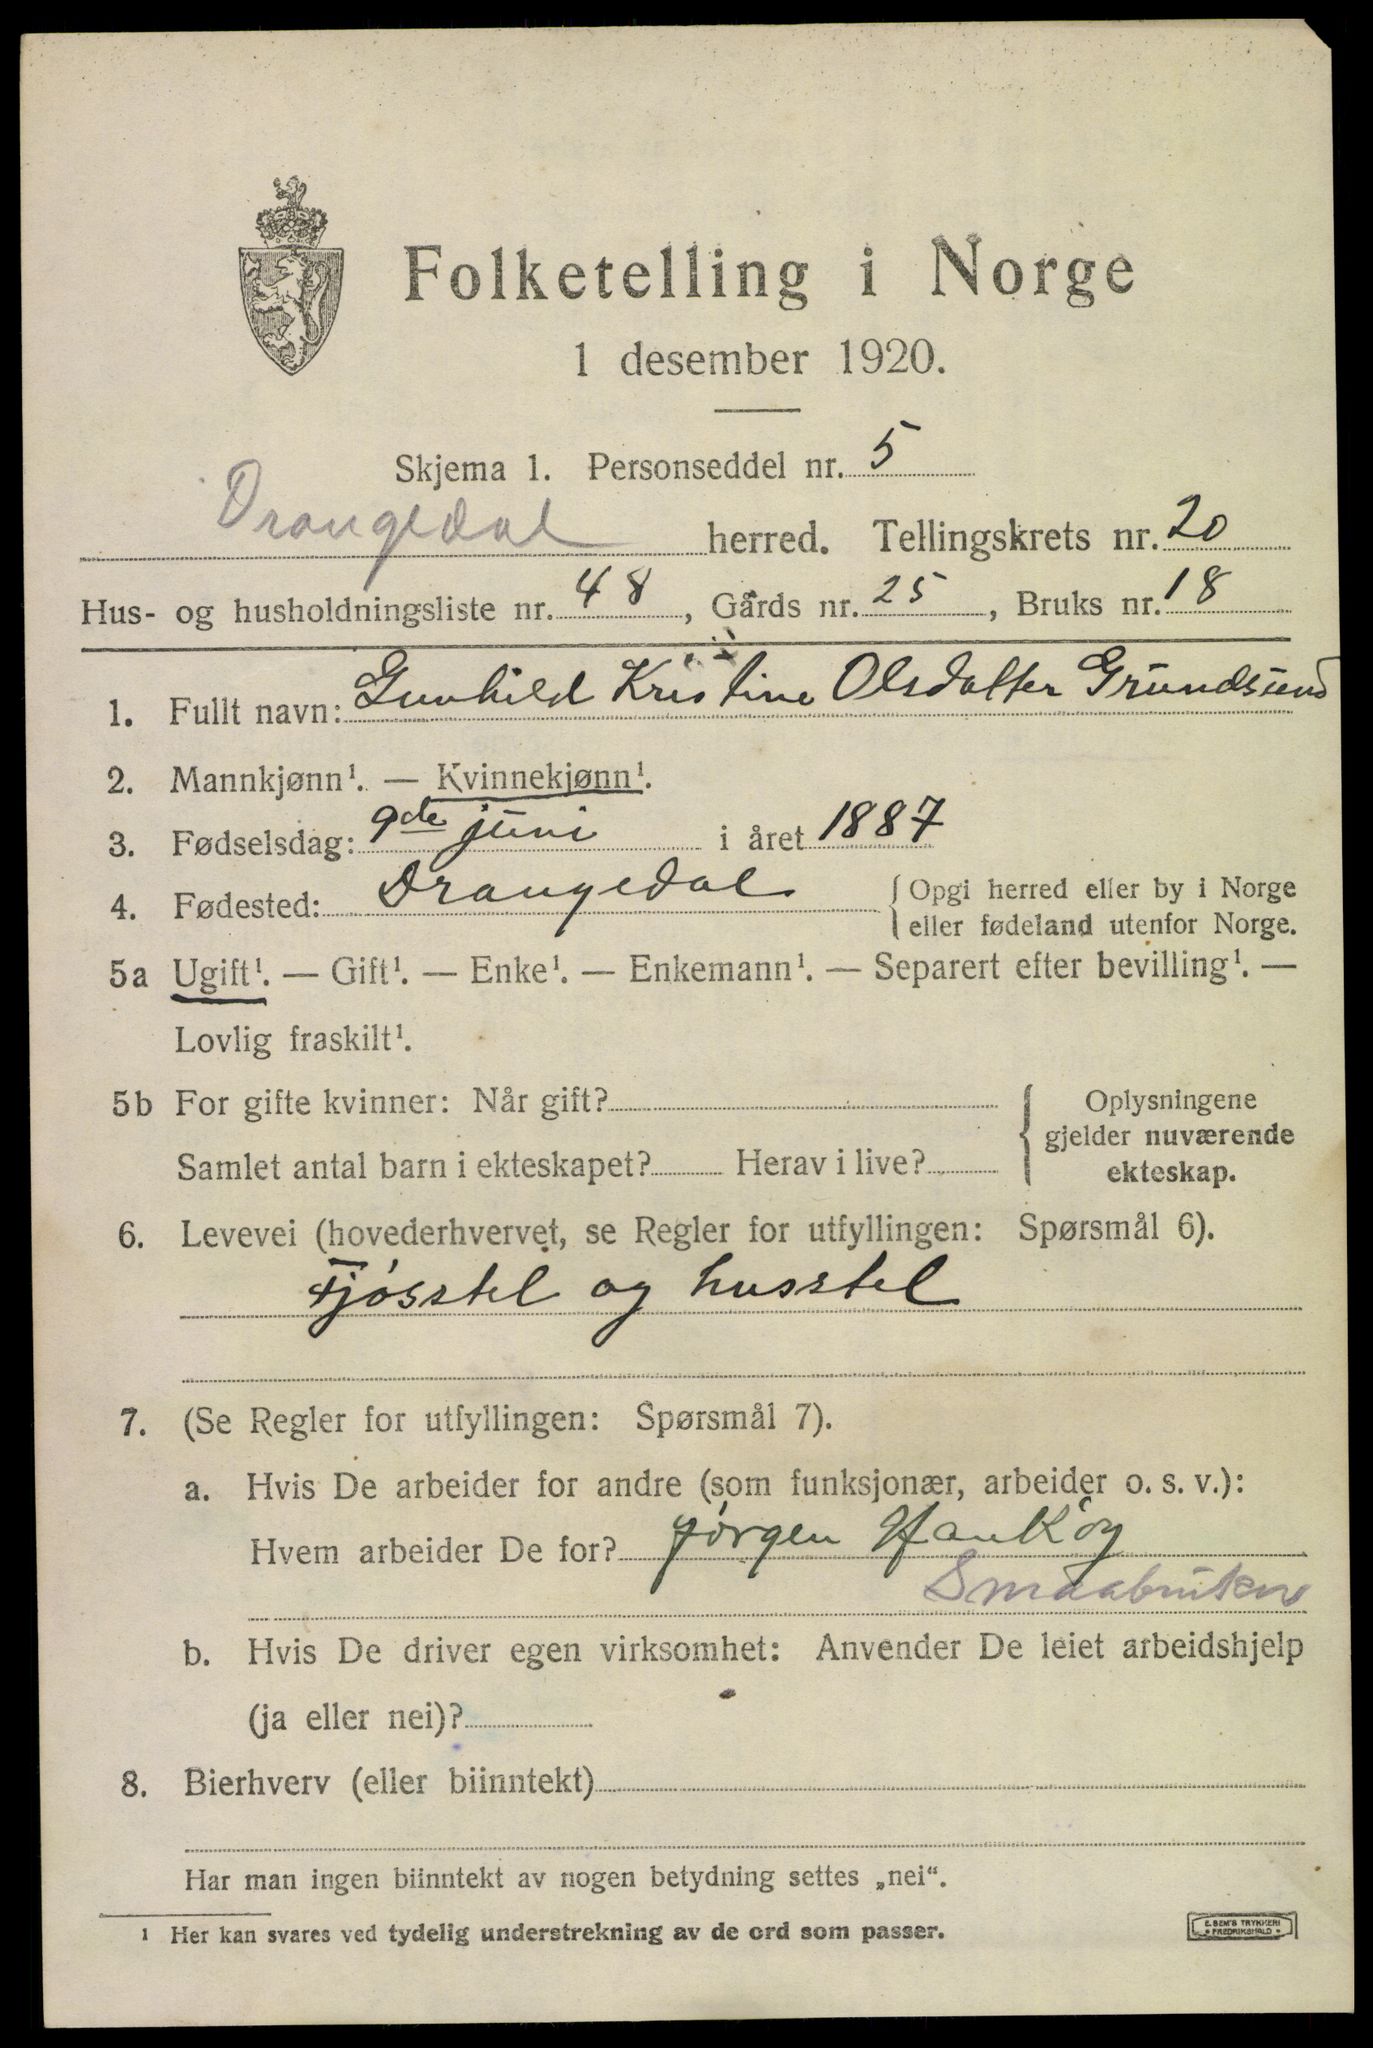 Folketelling i Norge
1 desember 1920.
Skjema 1. Personseddel nr. 5
Drangedal herred. Tellingskrets nr. 20
Hus- og husholdningsliste nr. 48, Gårds nr. 25, Bruks nr. 18
1. Fullt navn: Gunhild Kristine Olsdatter Grundsund
2. Mannkjønn¹. — Kvinnekjønn¹.
3. Fødselsdag: 9de juni i året 1887
4. Fødested: Drangedal { Opgi herred eller by i Norge
eller fødeland utenfor Norge.
5a Ugift¹. — Gift¹. — Enke¹. — Enkemann¹. — Separert efter bevilling¹. —
Lovlig fraskilt¹.
5b For gifte kvinner: Når gift? { Oplysningene
gjelder nuværende
Samlet antal barn i ekteskapet? Herav i live? ekteskap.
6. Levevei (hovederhvervet, se Regler for utfyllingen: Spørsmål 6).
Fjósstel og husstel
7. (Se Regler for utfyllingen: Spørsmål 7).
a. Hvis De arbeider for andre (som funksjonær, arbeider o. s. v.):
Hvem arbeider De for? Jórgen
b. Hvis De driver egen virksomhet: Anvender De leiet arbeidshjelp
(ja eller nei)?
8. Bierhverv (eller biinntekt)
Har man ingen biinntekt av nogen betydning settes „nei“.
¹ Her kan svares ved tydelig understrekning av de ord som passer.
E. SEM'S TRYKKERI
FREDRIKSHALD